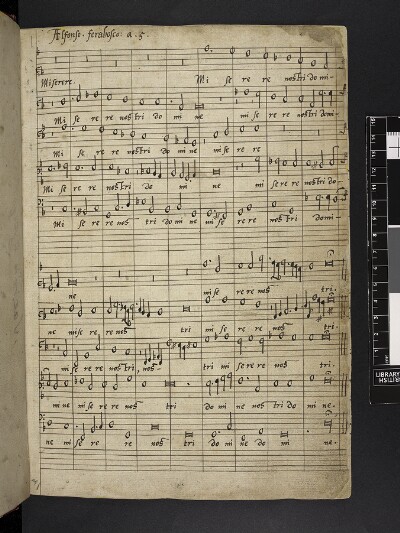 Alfonso. ferabosco. a. 5.
Miserere. Mi se re re nostri do mi-
Mi se re re nostri do mi ne mi se re re nostri domi-
Mi se re re nostri do mi ne mi se re re
Mi se re re nostri do mi ne mi se re re nostri do-
Mi se re re nos- tri do mi ne mi se re re nostri domi
ne mi se re re nos tri.
ne mi se re re nos tri mi se re re nos tri.
mi se re re nos tri, nos- tri mi se re re nos tri.
mi ne mi se re re nos tri do mi ne nos tri do mi ne.
ne mi se re re nos tri do mi ne do mi ne.
LIBRARY
BRITISH